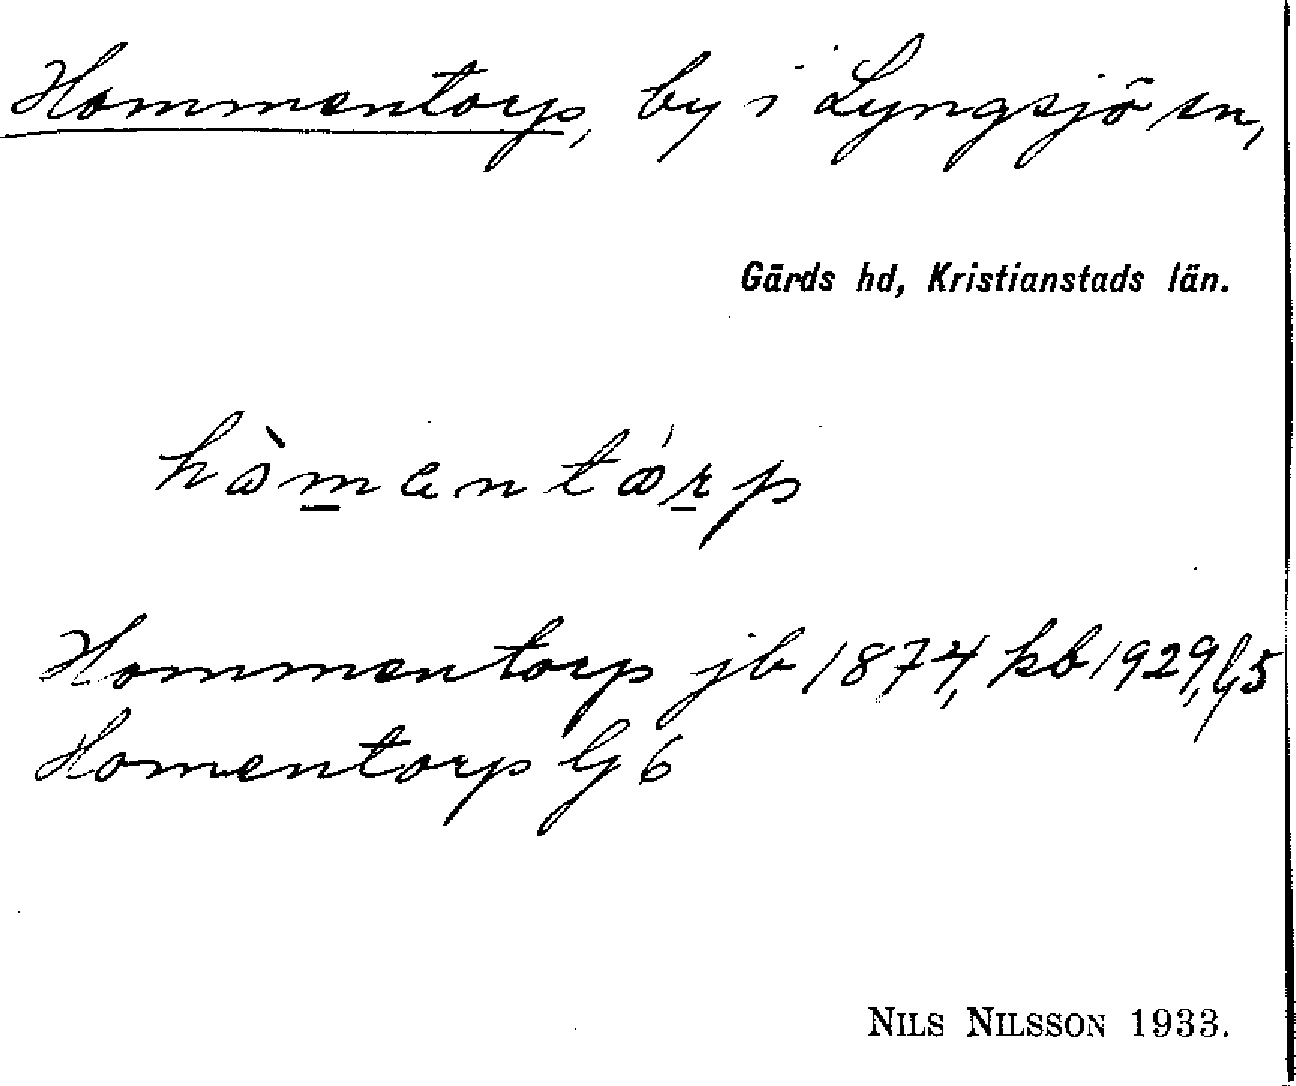 Hommentorp, by i Lyngsjö sn,
Gärds hd, Kristianstads län.
hòmentórp
Hommentorp jb 1874, kb 1929, Gj 5
Homentorp Gj 6
NILS NILSSON 1933.